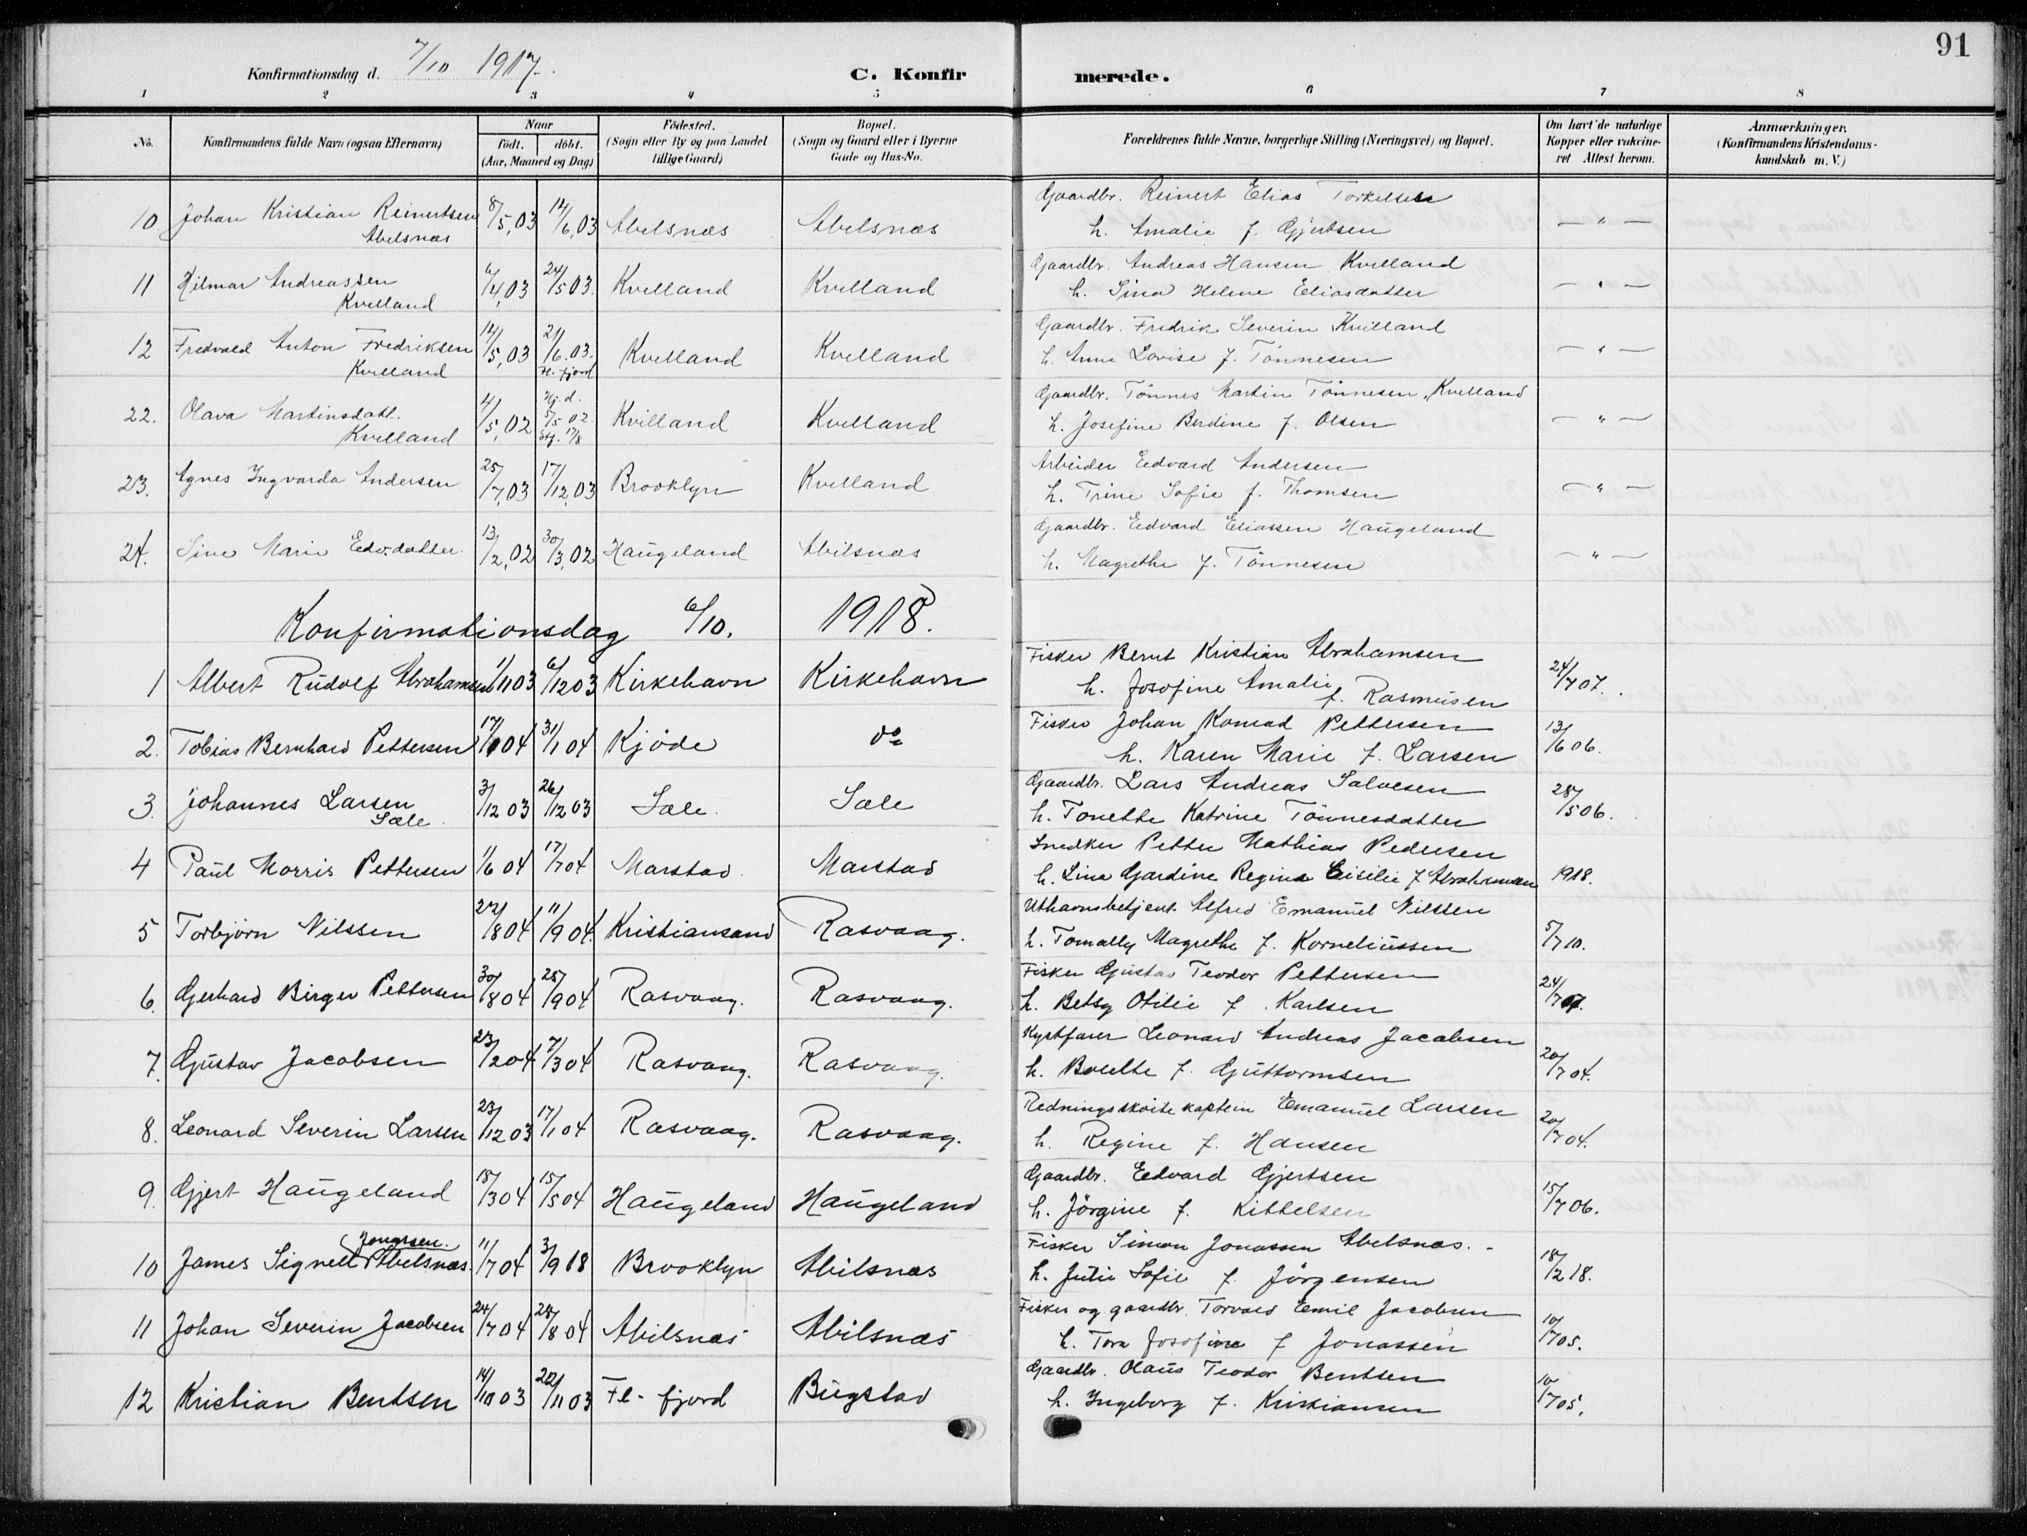 91
Konfirmationsdag d. 7/10 1917.
C. Konfirmerede.
1 2 3 4 5 6 7 8
No.
Konfirmandens fulde Navn (ogsaa Efternavn)
Naar
født. døbt.
(Aar, Maaned og Dag)
Fødested.
(Sogn eller By og paa Landet tillige Gaard)
Bopæl.
(Sogn og Gaard eller i Byerne Gade og Hus-No.
Forældrenes fulde Navne, borgerlige Stilling (Næringsvei) og Bopæl.
Om havt de naturlige Kopper eller vakcineret Attest herom.
Anmærkninger,
(Konfirmandens Kristendomskundskab m. V.)
10. Johan Kristian Reinertsen Abelsnæs 8/5,03 14/6,03 Abelsnæs Abelsnæs Gaardbr. Reinert Elias Torkelsen — " —
h. Amalie f. Gjertsen
11 Hilmar Andreassen Kvelland 6/4,03 24/5 03. Kvelland Kvelland Gaardbr. Andreas Hansen Kvelland — " —
h. Sina Helene Eliasdatter
12 Fredvald Anton Fredriksen Kvelland 14/5,03 21/6.03. Fl. fjord Kvelland Kvelland Gaardbr. Fredrik Severin Kvelland — " —
h. Anne Lovise f. Tønnesen
22. Olava Martinsdatt. Kvelland 4/5,02 Hj. d. 5/5 02. Stf. 17/8 Kvelland Kvelland Gaardbr. Tønnes Martin Tønnesen, Kvelland — " —
h. Josefine Berdine f. Olsen
23. Agnes Ingvarda Andersen 25/7,03 17/12,03 Brooklyn Kvelland Arbeider Edvard Andersen — " —
h. Trine Sofie f. Thomsen
24. Sine Marie Edv.datter 13/2,02 30/3,02 Haugeland Abelsnæs Gaardbr. Edvard Eliassen Haugeland — " —
h. Magrethe f. Tønnesen
Konfirmationsdag 6/10. 1918.
1 Albert Rudolf Abrahamsen 1/11 03 6/12 03 Kirkehavn Kirkehavn Fisker Bernt Kristian Abrahamsen 24/7 07.
h. Josefine Amalie f. Rasmusen
2. Tobias Bernhard Pettersen 17/1 04 31/1 04 Kjøde do Fisker Johan Konrad Pettersen 13/6 06.
h. Karen Marie f. Larsen
3. Johannes Larsen Sæle. 3/12 03 26/12 03 Sæle. Sæle Gaardbr. Lars Andreas Salvesen 28/5 06.
h. Tonette Katrine Tønnesdatter
4 Paul Morris Pettersen 1/6 04 17/7 04 Marstad. Marstad Snedker Petter Mathias Pedersen 1918.
h. Lina Gardine Regina Eisilie f Abrahamsen
5 Torbjørn Nilssen 22/8 04 11/9 04. Kristiansand Rasvaag. Uthavnsbetjent Alfred Emanuel Nilssen 5/7 10.
h. Tomally Magrethe f. Korneliussen
6. Gerhard Birger Pettersen 30/8 04 25/9 04 Rasvaag. Rasvaag. Fisker Gustav Teodor Pettersen 24/7 07.
h. Betsy Otilie f. Karlsen
7. Gustav Jacobsen 23/2 04 7/3 04 Rasvaag. Rasvaag. Kystfarer Leonard Andreas Jacobsen 20/7 04.
h. Bolette f. Guttormsen
8. Leonard Severin Larsen 23/12 03 17/1 04 Rasvaag. Rasvaag. Redningsskøitekaptein Emanuel Larsen 20/7 04.
h. Regine f. Hansen
9. Gjert Haugeland 18/3 04 15/5 04 Haugeland Haugeland Gaardbr. Edvard Gjertsen 15/7 06.
h. Jørgine f. Kittelsen
10 James Signell (Jonassen. Abelsnæs. 11/7 04 3/9 18 Brooklyn Abelsnæs Fisker Simon Jonassen Abelsnæs. 18/2 18.
h. Julie Sofie f. Jørgensen
11 Johan Severin Jacobsen 24/7 04 28/8 04 Abelsnæs Abelsnæs Fisker og gaardbr. Torvald Emil Jacobsen 10/7 05.
h. Tora Josefine f Jonassen
12 Kristian Bentsen 14/10 03 22/11 03 Fl- fjord Bugstad Gaardbr. Olaus Teodor Bentsen 10/7 05.
h. Ingeborg f. Kristiansen